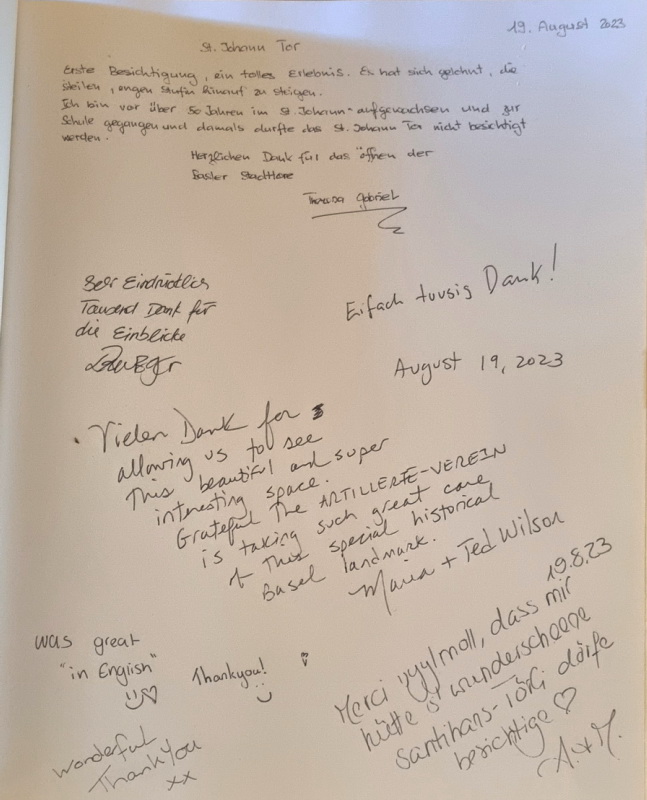 19. August 2023
St. Johann Tor
Erste Besichtigung, ein tolles Erlebnis. Es hat sich gelohnt, die
steilen, engen Stufen hinauf zu steigen.
Ich bin vor über 50 Jahren im St. Johann aufgewachsen und zur
Schule gegangen und damals durfte das St. Johann Tor nicht besichtigt
werden.
Herzlichen Dank für das öffnen der
Basler Stadttore
Theresa Gabriel
Sehr Eindrücklich
Tausend Dank für
die Einblicke
Eifach tuusig Dank!
August 19, 2023
Vielen Dank for
allowing us to see
This beautiful and super
interesting space.
Grateful The ARTILLERIE-VEREIN
is taking such great care
of This special historical
Basel landmark.
Maria + Ted Wilson
was great
"in English"
Thankyou!
19.8.23
Merci vyylmoll, dass mir
hütte s wunderscheene
Santihans-Törli dörfe
besichtige ♡
A. + M.
wonderful
Thankyou
xx